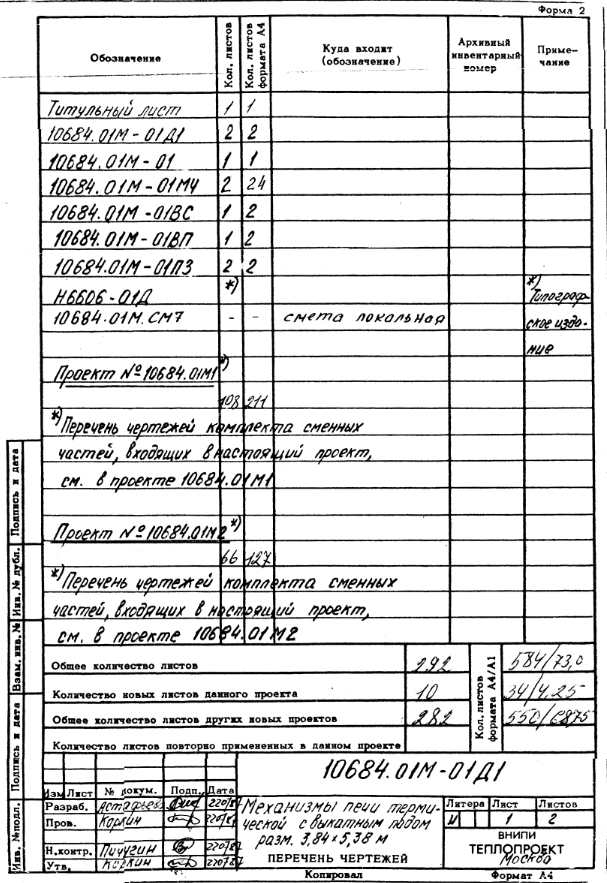 Форма 2
Обозначение Кол. листов Кол. листов формата А4 Куда входит (обозначение) Архивный инвентарный номер Приме-чание
Титульный лист 1 1
10684.01М-01Д1 2 2
10684.01М-01 1 1
10684.01М-01МЧ 2 24
10684.01М-01ВС 1 2
10684.01М-01ВП 1 2
10684.01М-01ПЗ 2 2
Н6606-01Д *) *) Типограф-
10684.01М.СМ7 - - смета локальная ское изда-
ние
Проект №10684.01М1 *)
108 211
*) Перечень чертежей комплекта сменных
частей, входящих в настоящий проект,
см. в проекте 10684.01М1
Проект №10684.01М2 *)
66 127
*) Перечень чертежей комплекта сменных
частей, входящих в настоящий проект,
см. в проекте 10684.01М2
Подпись и дата
Инв. № дубл.
Взам. инв. №
Подпись и дата
Инв. №подл.
Кол. листов формата А4/А1
Общее количество листов 292 584/73,0
Количество новых листов данного проекта 10 34/4,25
Общее количество листов других новых проектов 282 550/6875
Количество листов повторно примененных в данном проекте
10684.01М-01Д1
Изм Лист № докум. Подп. Дата
Разраб. Астафьев
Пров. Коркин
Н.контр. Пичугин
Утв. Коркин
Механизмы печи терми-
ческой с выкатным подом
разм. 3,84×5,38 м
ПЕРЕЧЕНЬ ЧЕРТЕЖЕЙ
Литера Лист Листов
И 1 2
ВНИПИ
ТЕПЛОПРОЕКТ
Москва
Копировал Формат А4